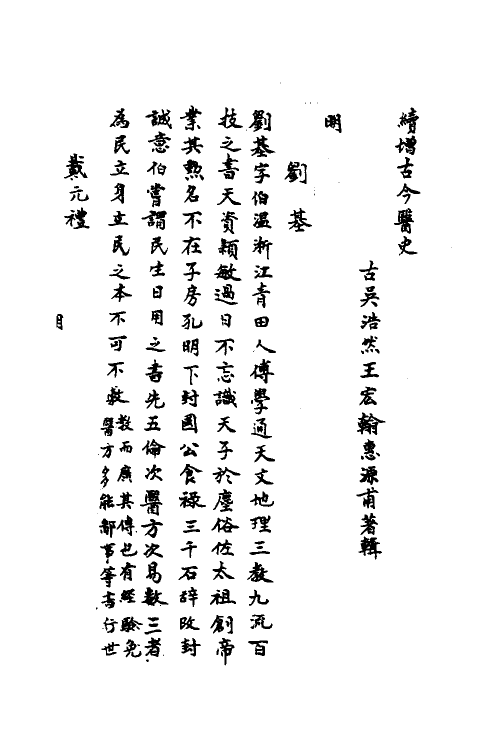 續增古今醫史
古吳浩然王宏翰惠源甫著輯
明
劉基
劉基字伯溫浙江青田人傅學通天文地理三教九流百
技之書天資穎敏過目不忘識天子於塵俗佐太祖創帝
業其勲名不在子房孔明下封國公食祿三千石辭改封
誠意伯嘗謂民生日用之書先五倫次醫方次易數三者
為民立身立民之本不可不
教而廣其傳也有經驗免
醫方多能鄙事等書行世
戴元禮
明